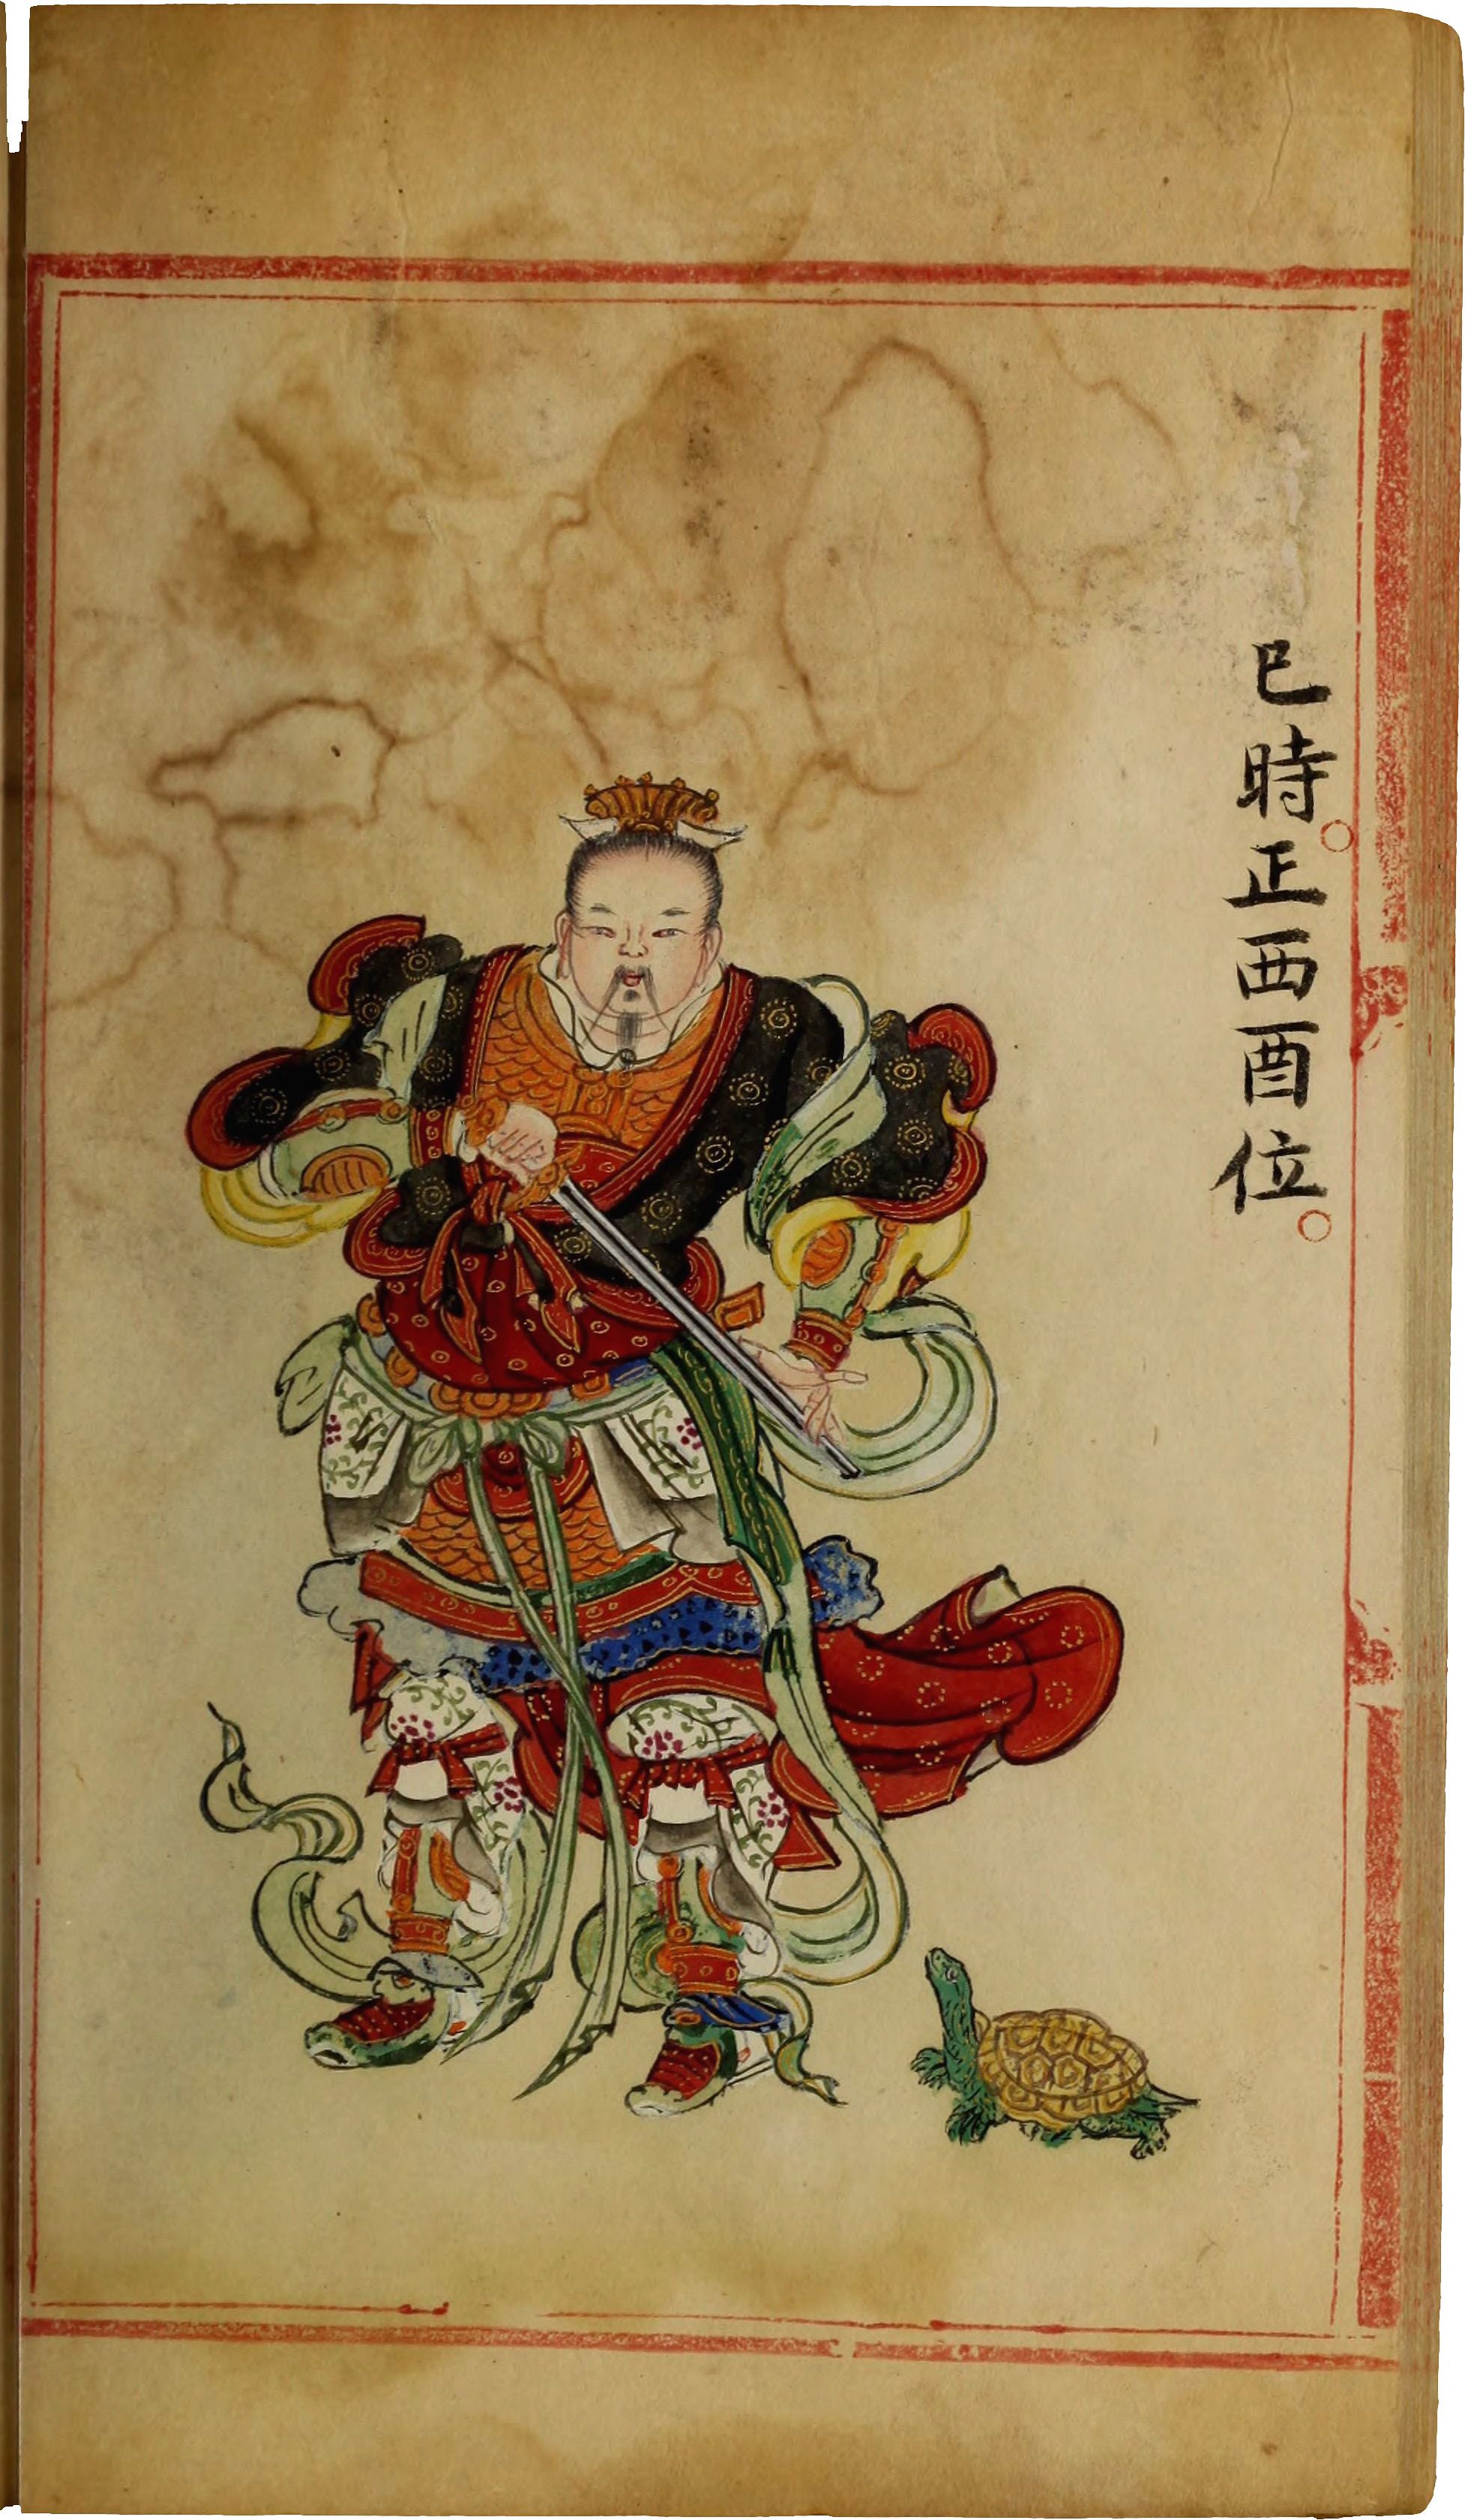 巳時。正西酉位。